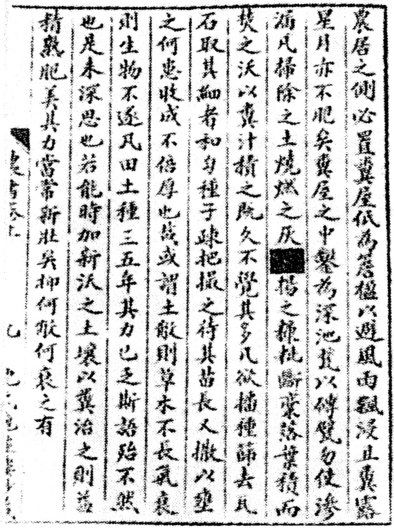 農居之側必置糞屋低為簷楹以避風雨飄浸且糞露
星月亦不肥矣糞屋之中鑿為深池甃以磚甓勿使滲
漏凡掃除之土燒燃之灰揚之糠粃斷藁落葉積而
焚之沃以糞汁積之既久不覺其多凡欲播種篩去瓦
石取其細者和勻種子疎把撮之待其苗長又撒以壅
之何患收成不倍厚也哉或謂土敝則草木不長氣衰
則生物不遂凡田土種三五年其力已乏斯語殆不然
也是未深思也若能時加新沃之土壤以糞治之則益
精熟肥美其力當常新壯矣抑何敝何衰之有
農書卷上
九